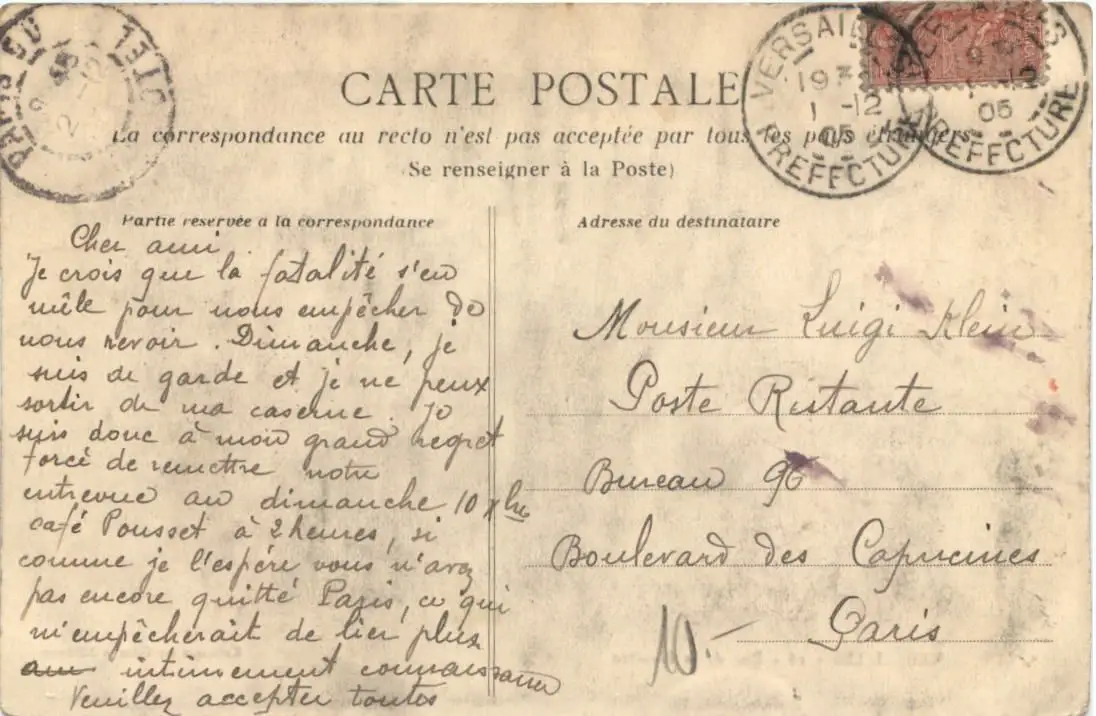 CARTE POSTALE
La correspondance au recto n'est pas acceptée par tous les pays étrangers
(Se renseigner à la Poste)
VERSAILLES
19
1 -12
05
PREFECTURE
VERSAILLES
1 -12
05
PREFECTURE
PARIS
Partie réservée à la correspondance
Cher ami.
Je crois que la fatalité s'en
mêle pour nous empêcher de
nous revoir. Dimanche, je
suis de garde et je ne peux
sortir de ma caserne. Je
suis donc à mon grand regret
forcé de remettre notre
entrevue au dimanche 10 xbre
café Pousset à 2 heures, si
comme je l'espère vous n'avez
pas encore quitté Paris, ce qui
m'empêcherait de lier plus
intimement connaissance
Veuillez accepter toutes
Adresse du destinataire
Monsieur Luigi Klein
Poste Ristante
Bureau 96
Boulevard des Capucines
Paris
10.-